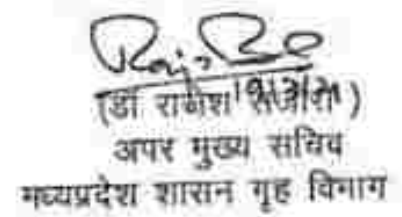 (डॉ राजेश राजौरा)
अपर मुख्य सचिव
मध्यप्रदेश शासन गृह विभाग